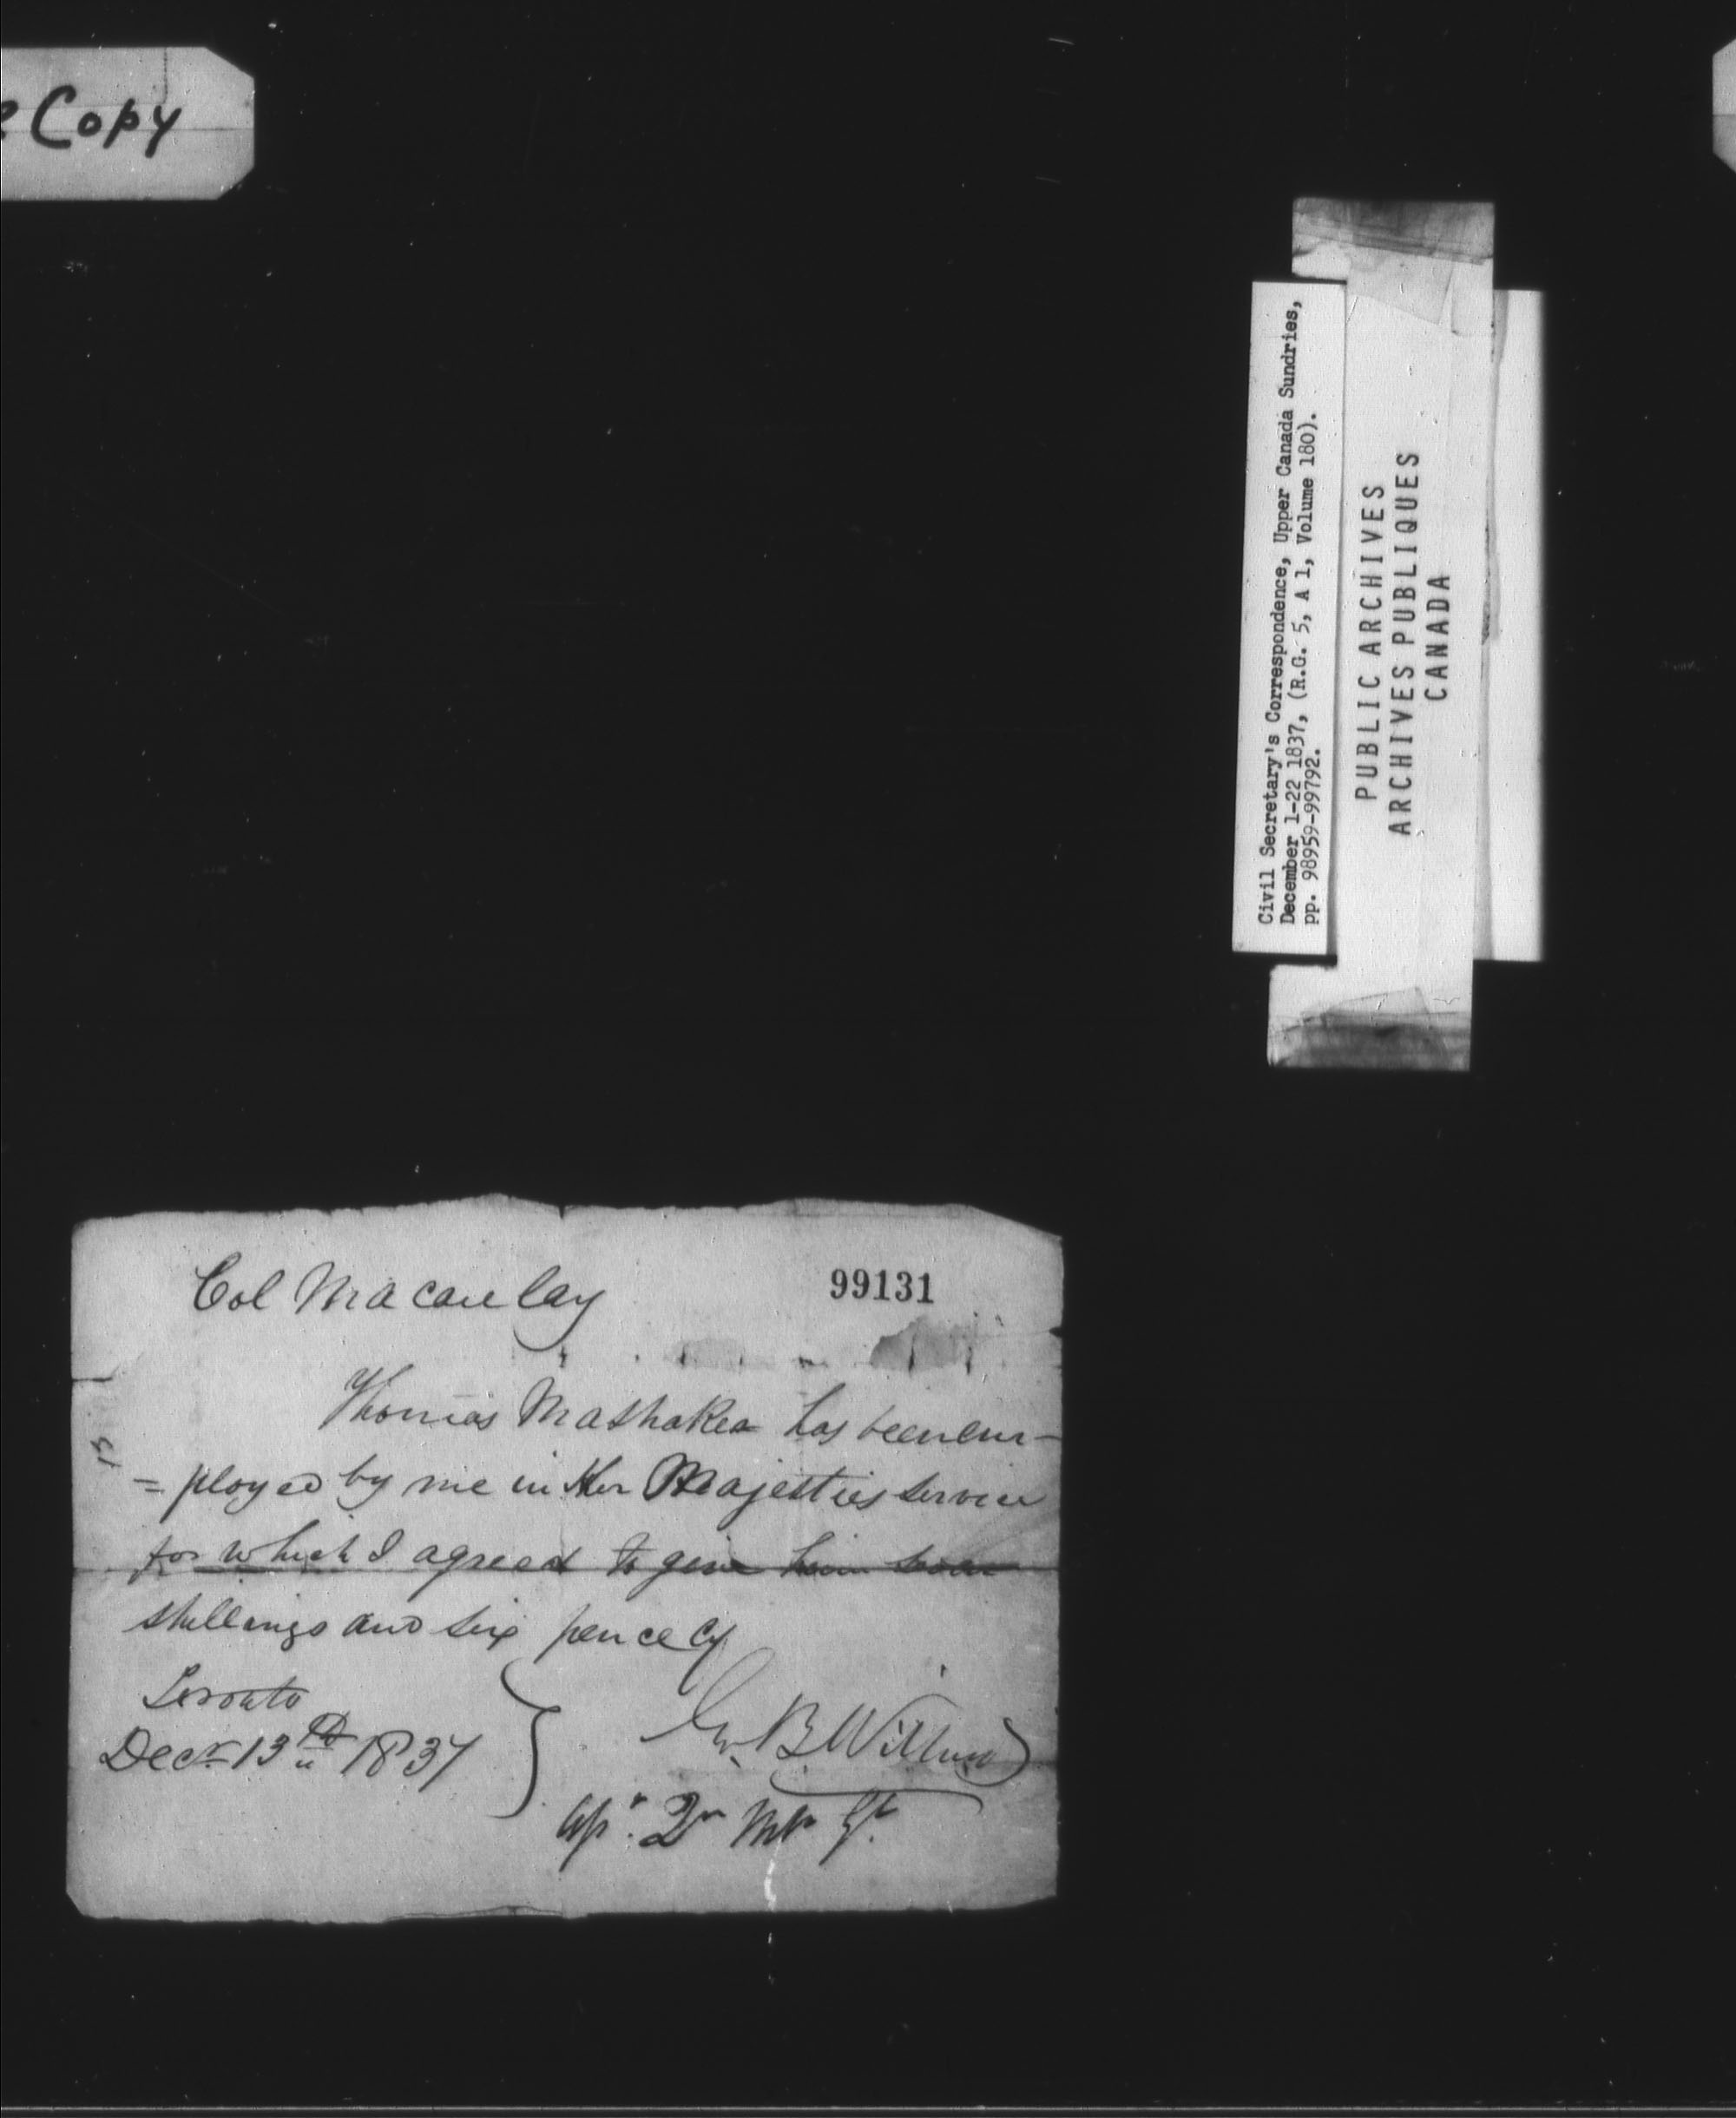 Copy
Civil Secretary's Correspondence, Upper Canada Sundries,
December 1-22 1837, (R.G. 5, A 1, Volume 180).
pp. 98959-99792.
PUBLIC ARCHIVES
ARCHIVES PUBLIQUES
CANADA
99131
Col Macaulay
Thomas Mashaker has been em-
=ployed by me in Her Majesties Service
for which I agreed to give him seven
shillings and six pence Cy
Toronto
Decr 13th 1837
B Willard